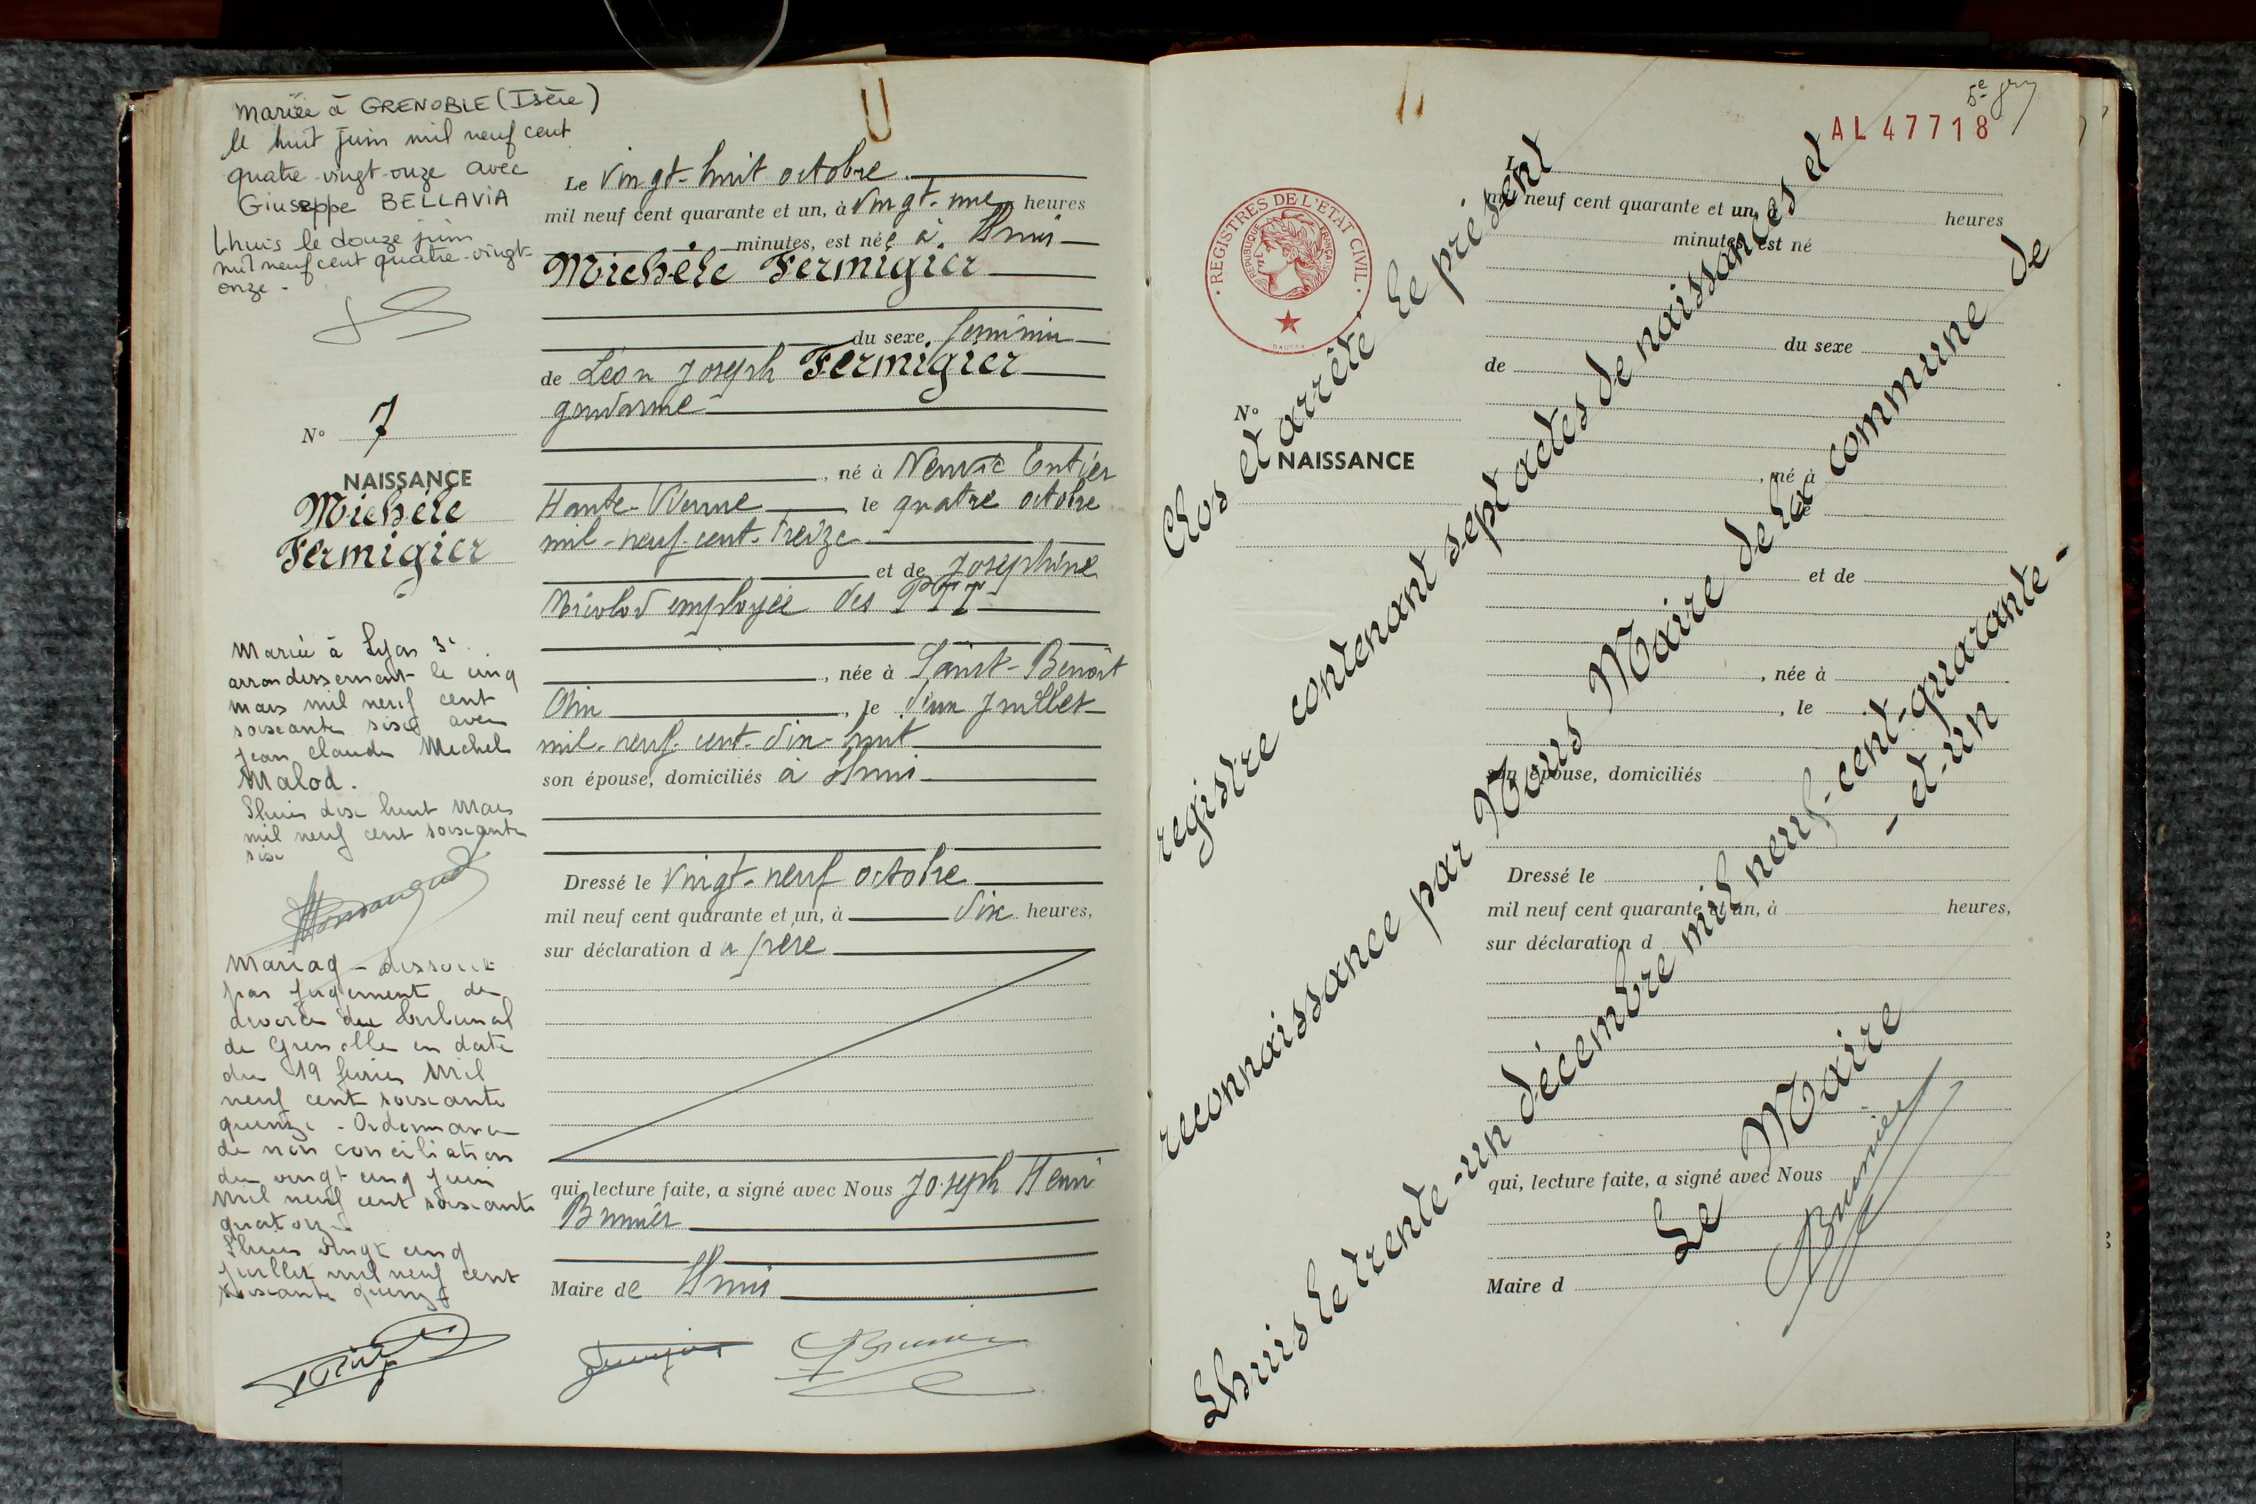 Mariée à GRENOBLE (Isère)
le huit juin mil neuf cent
quatre-vingt-onze avec
Giuseppe BELLAVIA
Lhuis le douze juin
mil neuf cent quatre-vingt-
onze -
N° 7
NAISSANCE
Michèle
Fermigier
Mariée à Lyon 3e
arrondissement le cinq
mars mil neuf cent
soixante six avec
Jean Claude Michel
Malod.
Lhuis dix huit Mars
mil neuf cent soixante
six
Mariage dissout
par jugement de
divorce du tribunal
de Grenoble en date
du 19 février Mil
neuf cent soixante
quinze - Ordonnance
de non conciliation
du vingt cinq juin
Mil neuf cent soixante
quatorze
Lhuis vingt cinq
juillet mil neuf cent
soixante quinze
Le vingt-huit octobre
mil neuf cent quarante et un, à vingt-une heures
minutes, est née à Lhuis
Michèle Fermigier
du sexe féminin
de Léon Joseph Fermigier
gendarme
, né à Neuvic Entier
Haute-Vienne le quatre octobre
mil-neuf-cent-treize
et de Joséphine
employée des PTT
, née à Saint-Benoit
Ain, le deux juillet
mil-neuf-cent-dix-huit
son épouse, domiciliés à Lhuis
Dressé le vingt-neuf octobre
mil neuf cent quarante et un, à dix heures,
sur déclaration du père
qui, lecture faite, a signé avec Nous Joseph Henri
Brunier
Maire de Lhuis
5e
AL47718
REGISTRES DE L'ETAT CIVIL
REPUBLIQUE FRANÇAISE
Le
mil neuf cent quarante et un, à heures
minutes, est né
du sexe
de
N°
NAISSANCE
, né à
le
et de
, née à
, le
son épouse, domiciliés
Dressé le
mil neuf cent quarante et un, à heures,
sur déclaration d
qui, lecture faite, a signé avec Nous
Maire d
Clos et arrêté le présent
registre contenant sept actes de naissances et
reconnaissance par Nous Maire de la commune de
Lhuis le trente-un décembre mil neuf-cent-quarante-
- et-un
Le Maire
Brunier